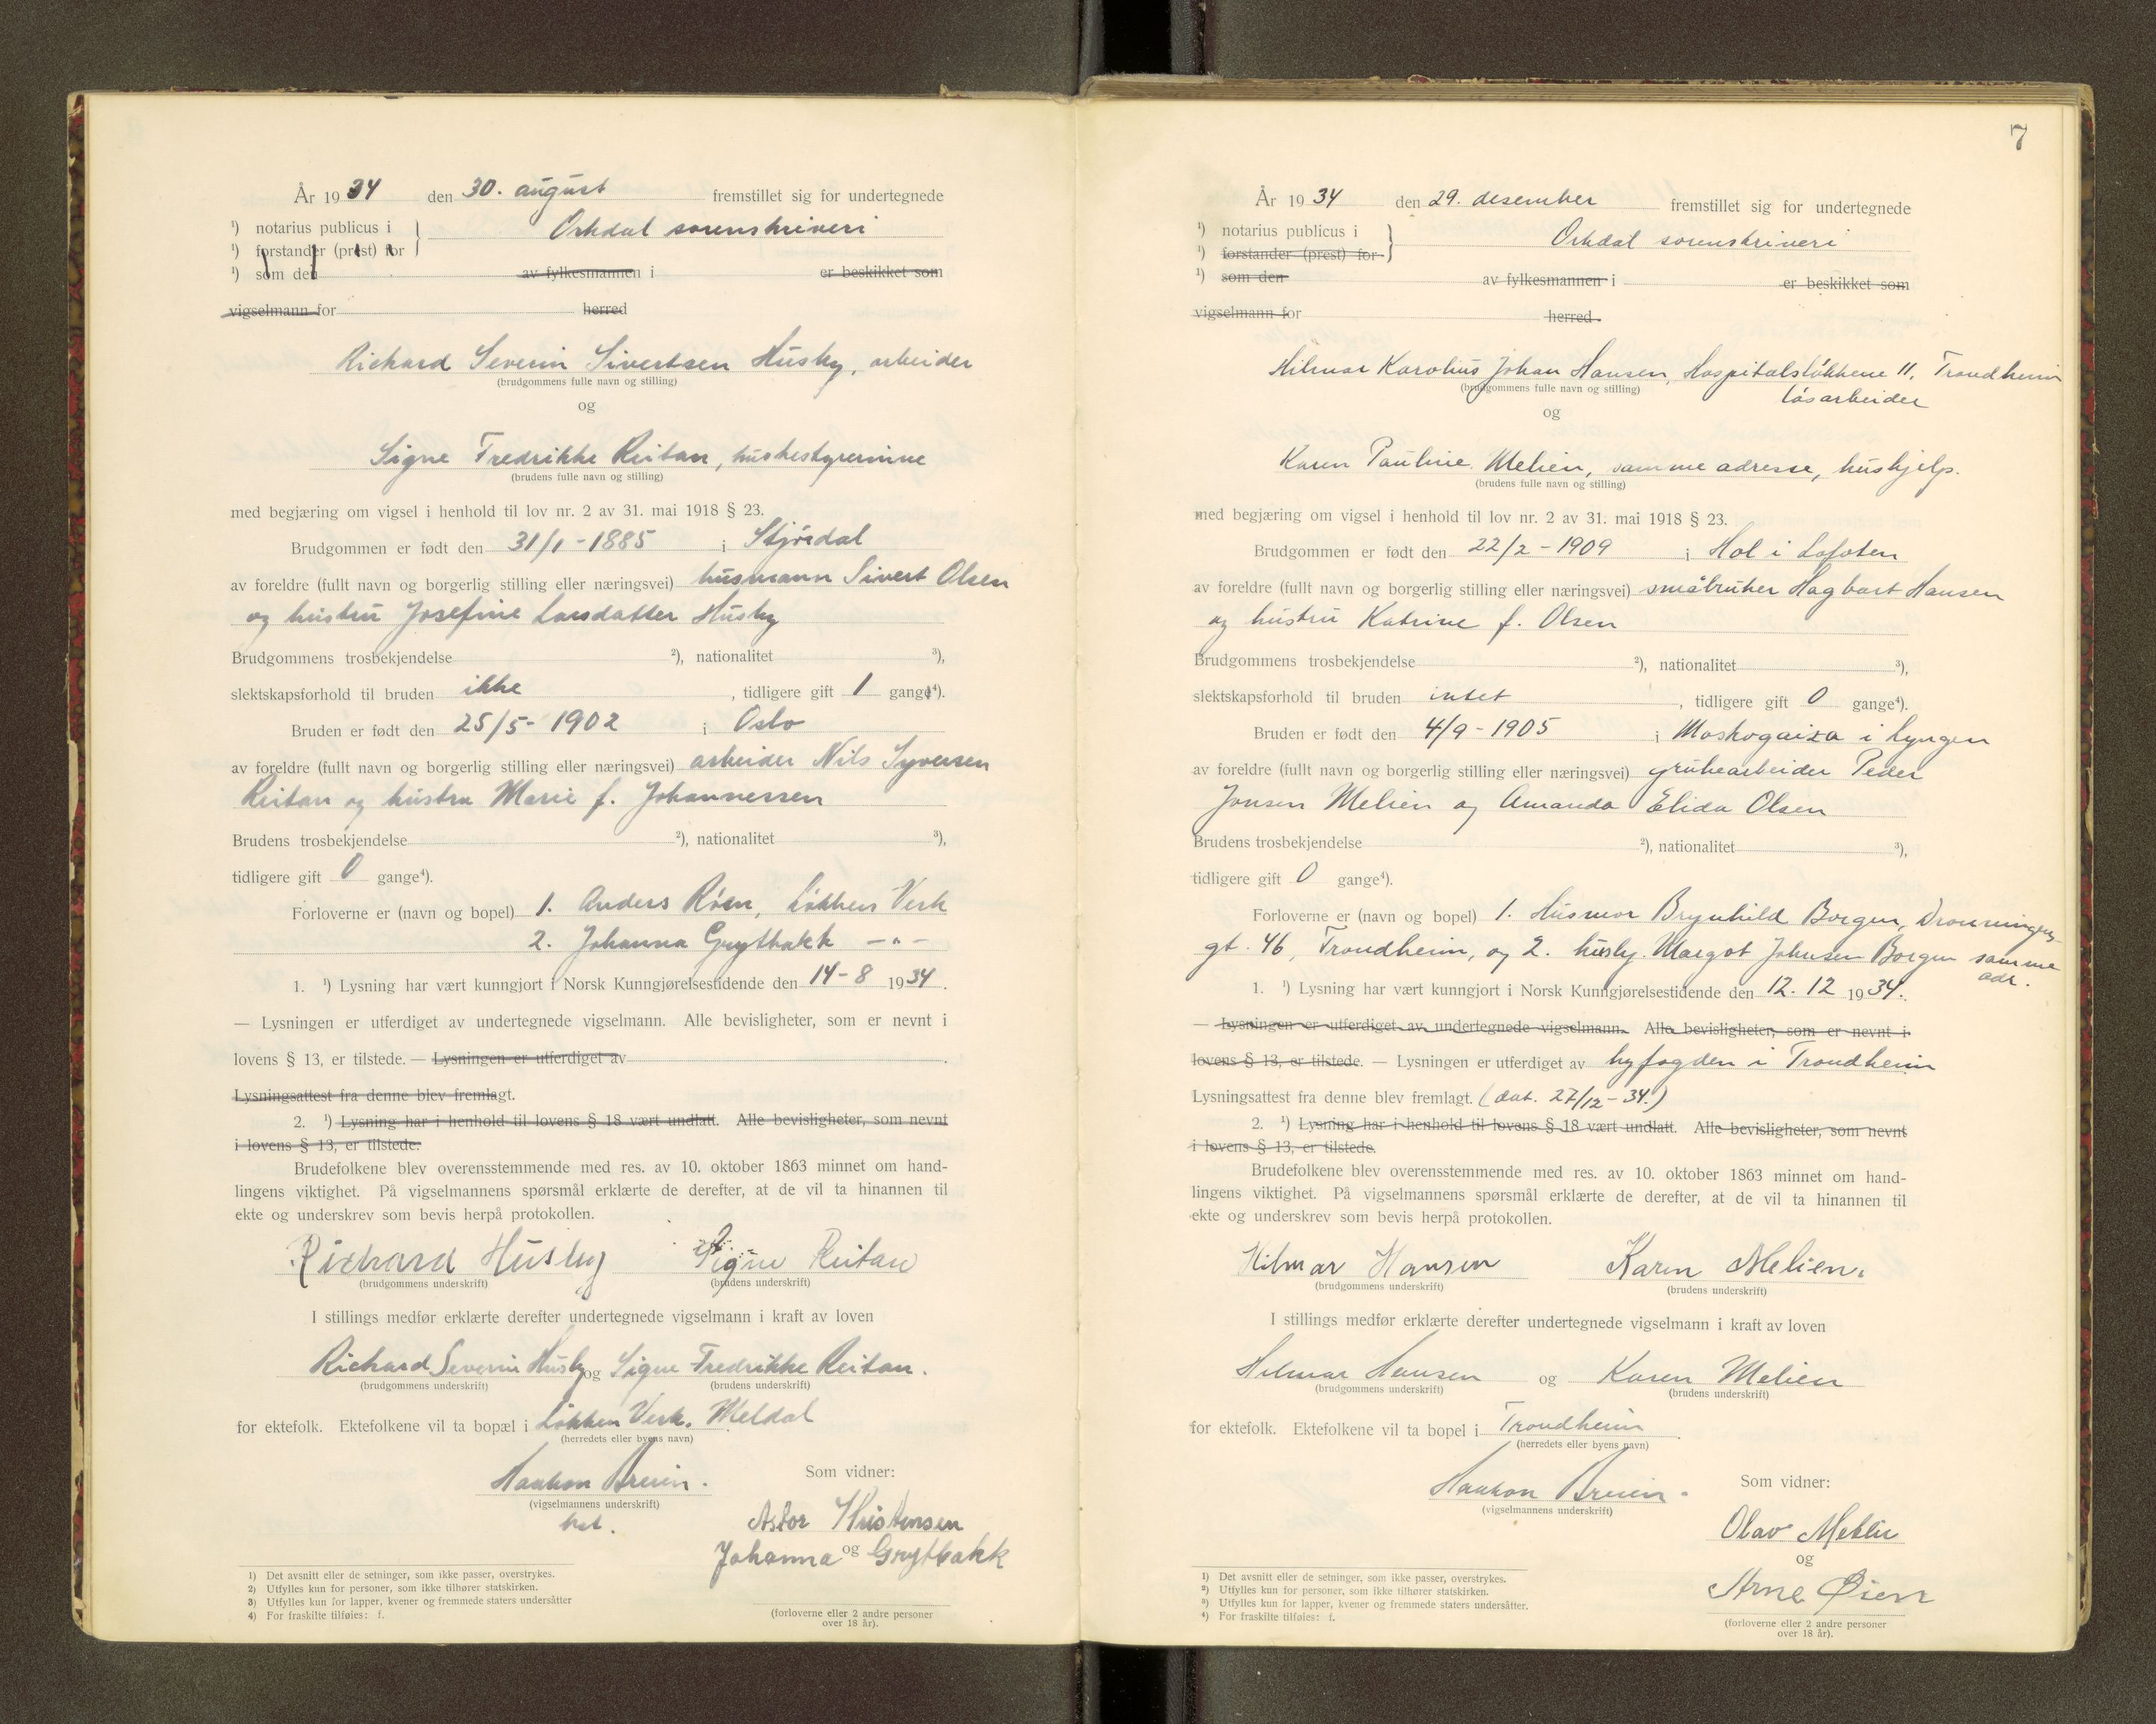 År 1934 den 30. august fremstillet sig for undertegnede
¹) notarius publicus i Orkdal sorenskriveri
¹) forstander (prest) for
¹) som den av fylkesmannen i er beskikket som
vigselmann for herred
Richard Severin Sivertsen Husby, arbeider
(brudgommens fulle navn og stilling)
og
Signe Fredrikke Reitan, husbestyrerinne
(brudens fulle navn og stilling)
med begjæring om vigsel i henhold til lov nr. 2 av 31. mai 1918 § 23.
Brudgommen er født den 31/1-1885 i Stjørdal
av foreldre (fullt navn og borgerlig stilling eller næringsvei) husmann Sivert Olsen
og hustru Josefine Larsdatter Husby
Brudgommens trosbekjendelse ²), nationalitet ³),
slektskapsforhold til bruden ikke, tidligere gift 1 gange⁴).
Bruden er født den 25/5-1902 i Oslo
av foreldre (fullt navn og borgerlig stilling eller næringsvei) arbeider Nils Syversen
Reitan og hustru Marie f. Johannessen
Brudens trosbekjendelse ²), nationalitet ³),
tidligere gift 0 gange⁴).
Forloverne er (navn og bopel) 1. Anders Røen, Løkken Verk
2. Johanna Grytbakk —"—
1. ¹) Lysning har vært kunngjort i Norsk Kunngjørelsestidende den 14-8 1934.
— Lysningen er utferdiget av undertegnede vigselmann. Alle bevisligheter, som er nevnt i
lovens § 13, er tilstede. — Lysningen er utferdiget av .
Lysningsattest fra denne blev fremlagt.
2. ¹) Lysning har i henhold til lovens § 18 vært undlatt. Alle bevisligheter, som nevnt
i lovens § 13, er tilstede.
Brudefolkene blev overensstemmende med res. av 10. oktober 1863 minnet om hand-
lingens viktighet. På vigselmannens spørsmål erklærte de derefter, at de vil ta hinannen til
ekte og underskrev som bevis herpå protokollen.
Richard Husby Signe Reitan
(brudgommens underskrift) (brudens underskrift)
I stillings medfør erklærte derefter undertegnede vigselmann i kraft av loven
Richard Severin Husby og Signe Fredrikke Reitan.
(brudgommens underskrift) (brudens underskrift)
for ektefolk. Ektefolkene vil ta bopæl i Løkken Verk. Meldal
(herredets eller byens navn)
Haakon Breien.
(vigselmannens underskrift)
Som vidner:
Astor Kristensen
og
Johanna Grytbakk
(forloverne eller 2 andre personer
over 18 år).
1) Det avsnitt eller de setninger, som ikke passer, overstrykes.
2) Utfylles kun for personer, som ikke tilhører statskirken.
3) Utfylles kun for lapper, kvener og fremmede staters undersåtter
4) For fraskilte tilføies: f.
7
År 1934 den 29. desember fremstillet sig for undertegnede
¹) notarius publicus i Orkdal sorenskriveri
¹) forstander (prest) for
¹) som den av fylkesmannen i er beskikket som
vigselmann for herred
Hilmar Karolius Johan Hansen, Hospitalsløkkene 11, Trondheim
løsarbeider
(brudgommens fulle navn og stilling)
og
Karen Pauline Melien, samme adresse, hushjelp.
(brudens fulle navn og stilling)
med begjæring om vigsel i henhold til lov nr. 2 av 31. mai 1918 § 23.
Brudgommen er født den 22/2-1909 i Hol i Lofoten
av foreldre (fullt navn og borgerlig stilling eller næringsvei) småbruker Hagbart Hansen
og hustru Katrine f. Olsen
Brudgommens trosbekjendelse ²), nationalitet ³),
slektskapsforhold til bruden intet, tidligere gift 0 gange⁴).
Bruden er født den 4/9-1905 i Moskogaisa i Lyngen
av foreldre (fullt navn og borgerlig stilling eller næringsvei) grubearbeider Peder
Jonsen Melien og Amanda Elida Olsen
Brudens trosbekjendelse ²), nationalitet ³),
tidligere gift 0 gange⁴).
Forloverne er (navn og bopel) 1. Husmor Brynhild Borgen, Dronningens
gt. 46, Trondheim, og 2. hushj. Margot Johnsen Borgen samme
adr.
1. ¹) Lysning har vært kunngjort i Norsk Kunngjørelsestidende den 12.12 1934.
— Lysningen er utferdiget av undertegnede vigselmann. Alle bevisligheter, som er nevnt i
lovens § 13, er tilstede. — Lysningen er utferdiget av byfogden i Trondheim
Lysningsattest fra denne blev fremlagt. (dat. 27/12-34.)
2. ¹) Lysning har i henhold til lovens § 18 vært undlatt. Alle bevisligheter, som nevnt
i lovens § 13, er tilstede.
Brudefolkene blev overensstemmende med res. av 10. oktober 1863 minnet om hand-
lingens viktighet. På vigselmannens spørsmål erklærte de derefter, at de vil ta hinannen til
ekte og underskrev som bevis herpå protokollen.
Hilmar Hansen Karen Melien.
(brudgommens underskrift) (brudens underskrift)
I stillings medfør erklærte derefter undertegnede vigselmann i kraft av loven
Hilmar Hansen og Karen Melien
(brudgommens underskrift) (brudens underskrift)
for ektefolk. Ektefolkene vil ta bopel i Trondheim
(herredets eller byens navn)
Haakon Breien.
(vigselmannens underskrift)
Som vidner:
Olav
og
Arne Øien
(forloverne eller 2 andre personer
over 18 år).
1) Det avsnitt eller de setninger, som ikke passer, overstrykes.
2) Utfylles kun for personer, som ikke tilhører statskirken.
3) Utfylles kun for lapper, kvener og fremmede staters undersåtter.
4) For fraskilte tilføies: f.